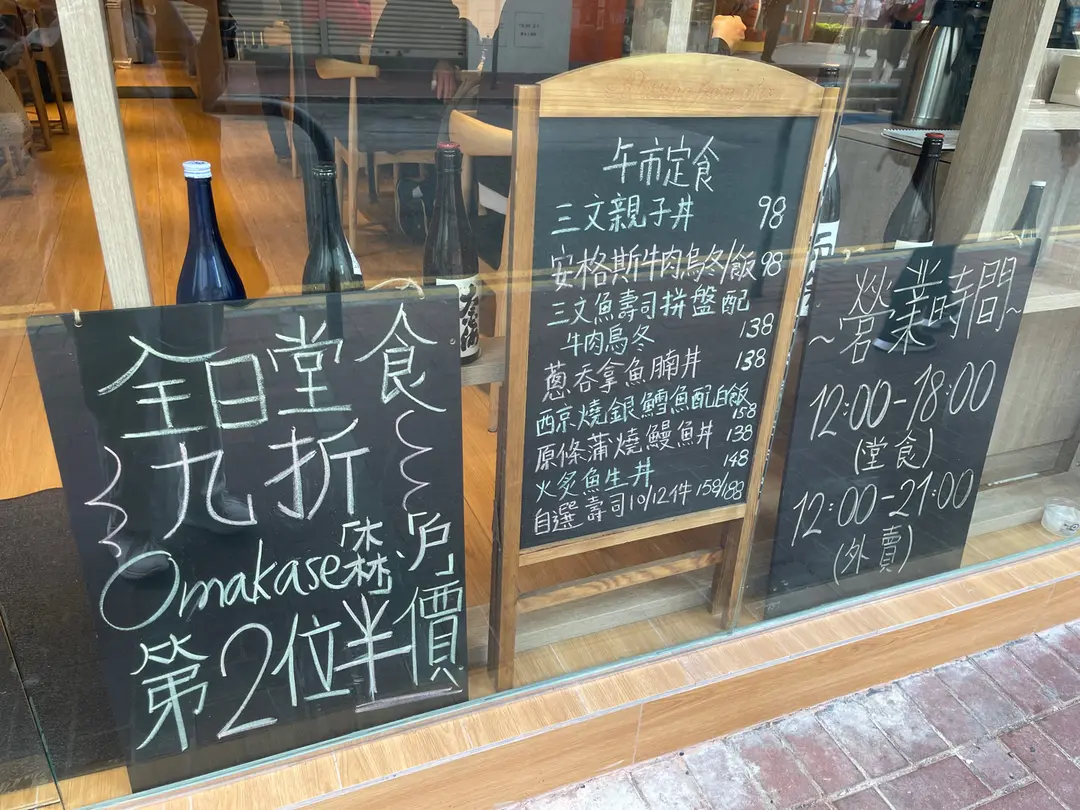 全日堂食
九折
Omakase「森、戶」
第2位半價
午市定食
三文親子丼 98
安格斯牛肉烏冬/飯 98
三文魚壽司拼盤配
牛肉烏冬 138
蔥吞拿魚腩丼 138
西京燒銀鱈魚配白飯 158
原條蒲燒鰻魚丼 138
火炙魚生丼 148
自選壽司10/12件 158/188
~營業時間~
12:00-18:00
(堂食)
12:00-21:00
(外賣)